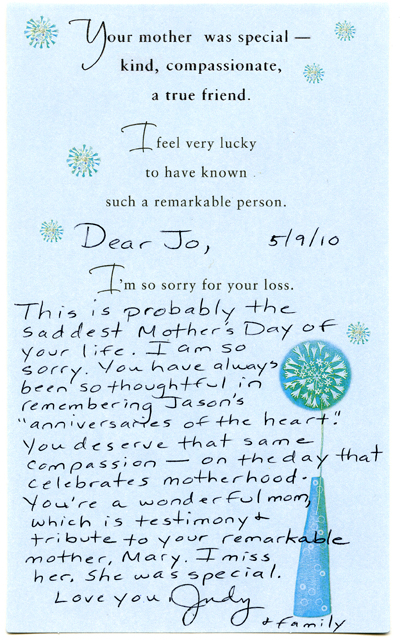 Your mother was special —
kind, compassionate,
a true friend.
I feel very lucky
to have known
such a remarkable person.
Dear Jo, 5/9/10
I'm so sorry for your loss.
This is probably the
saddest Mother's Day of
your life. I am so
sorry. You have always
been so thoughtful in
remembering Jason's
"anniversaries of the heart."
You deserve that same
compassion — on the day that
celebrates motherhood.
You're a wonderful mom,
which is testimony &
tribute to your remarkable
mother, Mary. I miss
her. She was special.
Love you, Judy
& family